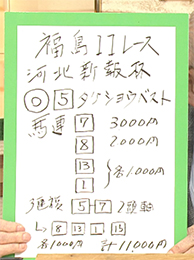 福島11レース
河北新報杯
◎ 5 タケショウベスト
馬連 7 3000円
8 2000円
13
1 各1,000円
3連複 5-7 2頭軸
8 13 1 13
各1000円 計11,000円